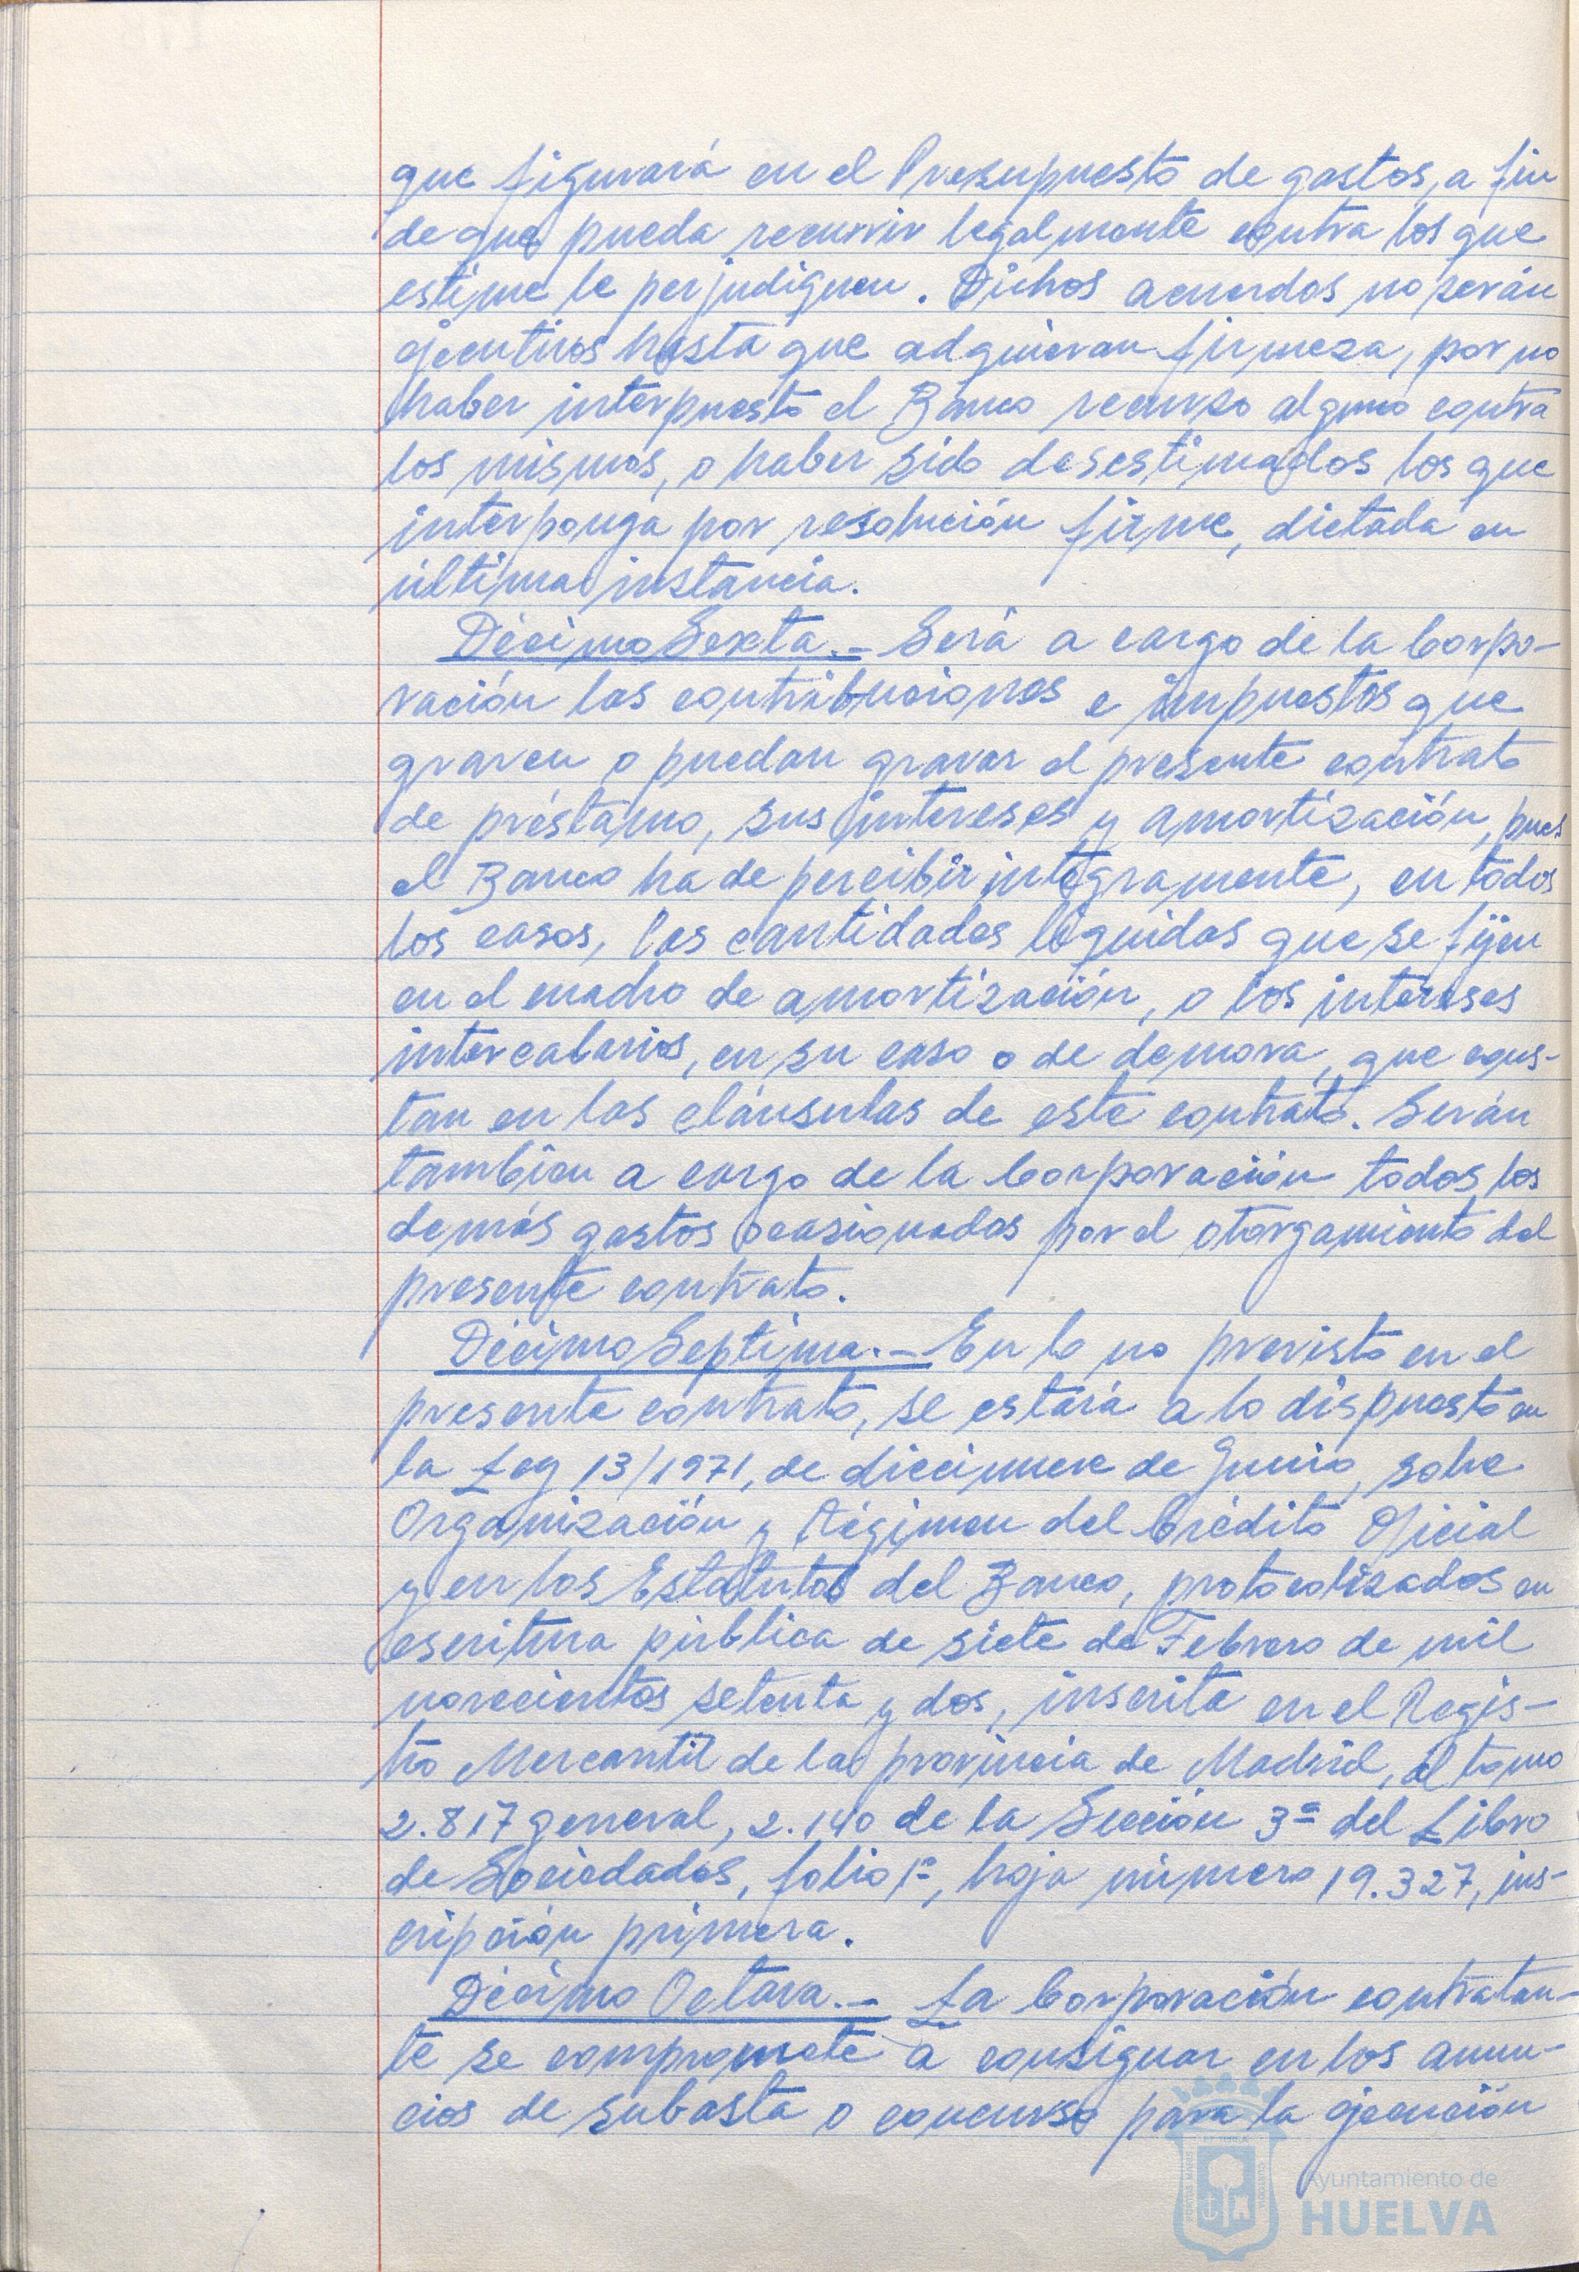 que figurará en el Presupuesto de gastos, a fin
de que pueda recurrir legalmente contra los que
estime le perjudiquen. Dichos acuerdos no serán
ejecutivos hasta que adquieran firmeza, por no
haber interpuesto el Banco recurso alguno contra
los mismos, o haber sido desestimados los que
interponga por resolución firme, dictada en
última instancia.
Décimo Sexta.- Será a cargo de la Corpo-
ración las contribuciones e impuestos que
graven o puedan gravar el presente contrato
de préstamo, sus intereses y amortización, pues
el Banco ha de percibir íntegramente, en todos
los casos, las cantidades líquidas que se fijen
en el cuadro de amortización, o los intereses
intercalarios, en su caso o de demora, que cons-
tan en las cláusulas de este contrato. Serán
también a cargo de la Corporación todos los
demás gastos ocasionados por el otorgamiento del
presente contrato.
Décimo Séptima.- En lo no previsto en el
presente contrato, se estará a lo dispuesto en
la Ley 13/1971, de diecinueve de Junio, sobre
Organización y Régimen del Crédito Oficial
y en los Estatutos del Banco, protocolizados en
escritura pública de siete de Febrero de mil
novecientos setenta y dos, inscrita en el Regis-
tro Mercantil de la provincia de Madrid, al tomo
2.817 general, 2.140 de la Sección 3ª del Libro
de Sociedades, folio 1º, hoja número 19.327, ins-
cripción primera.
Décimo Octava.- La Corporación contratan-
te se compromete a consignar en los anun-
cios de subasta o concurso para la ejecución
Ayuntamiento de
HUELVA